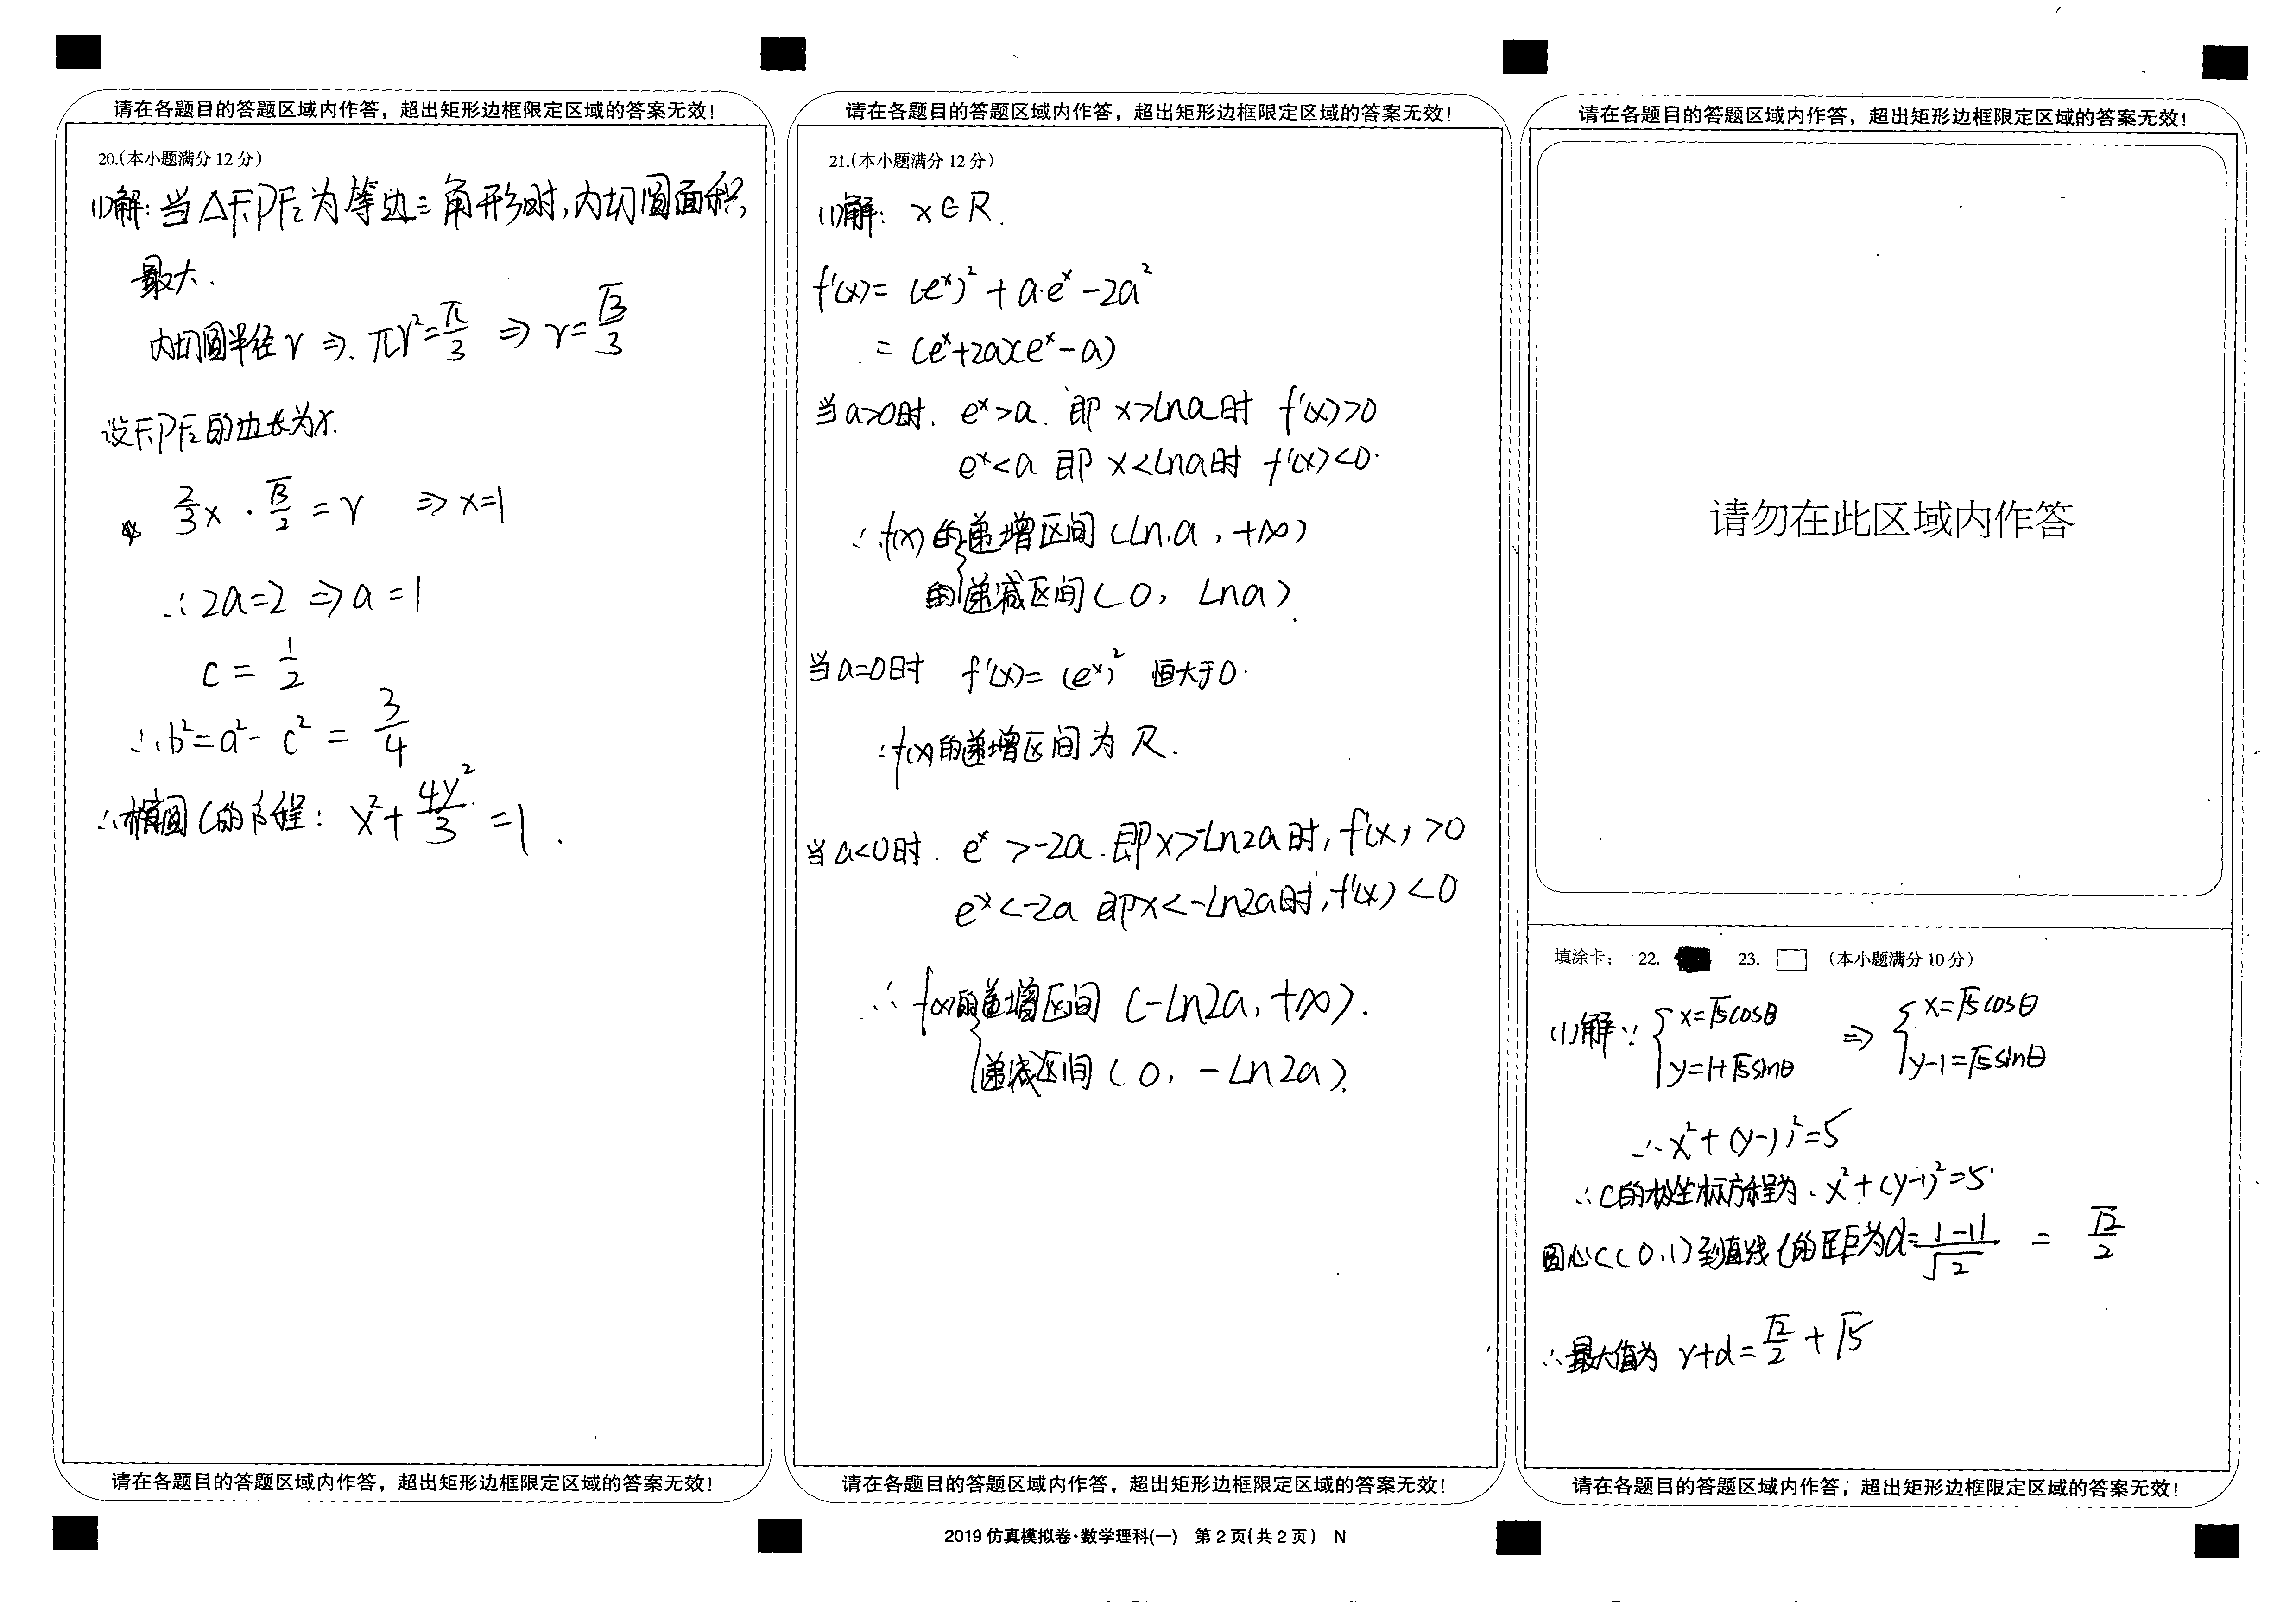 请在各题目的答题区域内作答，超出矩形边框限定区域的答案无效！
20.（本小题满分12分）
(1)解：当△F₁PF₂为等边三角形时，内切圆面积，
最大．
内切圆半径r ⇒ πr²=π/3 ⇒ r=√3/3
设F₁PF₂的边长为x.
2/3x · √3/2 = r ⇒ x=1
∴2a=2 ⇒ a=1
c = 1/2
∴b²=a²- c² = 3/4
∴椭圆C的方程： x²+4y²/3 =1 .
请在各题目的答题区域内作答，超出矩形边框限定区域的答案无效！
请在各题目的答题区域内作答，超出矩形边框限定区域的答案无效！
21.（本小题满分12分）
(1)解： x∈R .
f'(x)= (eˣ)² + a·eˣ -2a²
= (eˣ+2a)(eˣ-a)
当a>0时. eˣ>a. 即 x>Lna时 f'(x)>0
eˣ<a 即 x<Lna时 f'(x)<0.
∴f(x)的{递增区间(Lna，+∞)
的{递减区间(0，Lna).
当a=0时 f'(x)= (eˣ)² 恒大于0.
∴f(x)的递增区间为R.
当a<0时. eˣ >-2a.即x>-Ln2a时，f'(x)>0
eˣ<-2a 即x<-Ln2a时，f'(x)<0
∴ f(x)的{递增区间 (-Ln2a，+∞).
{递减区间(0，-Ln2a).
请在各题目的答题区域内作答，超出矩形边框限定区域的答案无效！
2019仿真模拟卷·数学理科(一) 第2页(共2页) N
请在各题目的答题区域内作答，超出矩形边框限定区域的答案无效！
请勿在此区域内作答
填涂卡： 22. 23. （本小题满分10分）
(1)解∵ {x=√5cosθ ⇒ {x=√5cosθ
y=1+√5sinθ y-1=√5sinθ
∴x²+(y-1)²=5
∴C的极坐标方程为．x²+(y-1)²=5.
圆心C(0,1)到直线l的距为d=|-1|/√2 = √2/2
∴最大值为 r+d=√2/2+√5
请在各题目的答题区域内作答，超出矩形边框限定区域的答案无效！